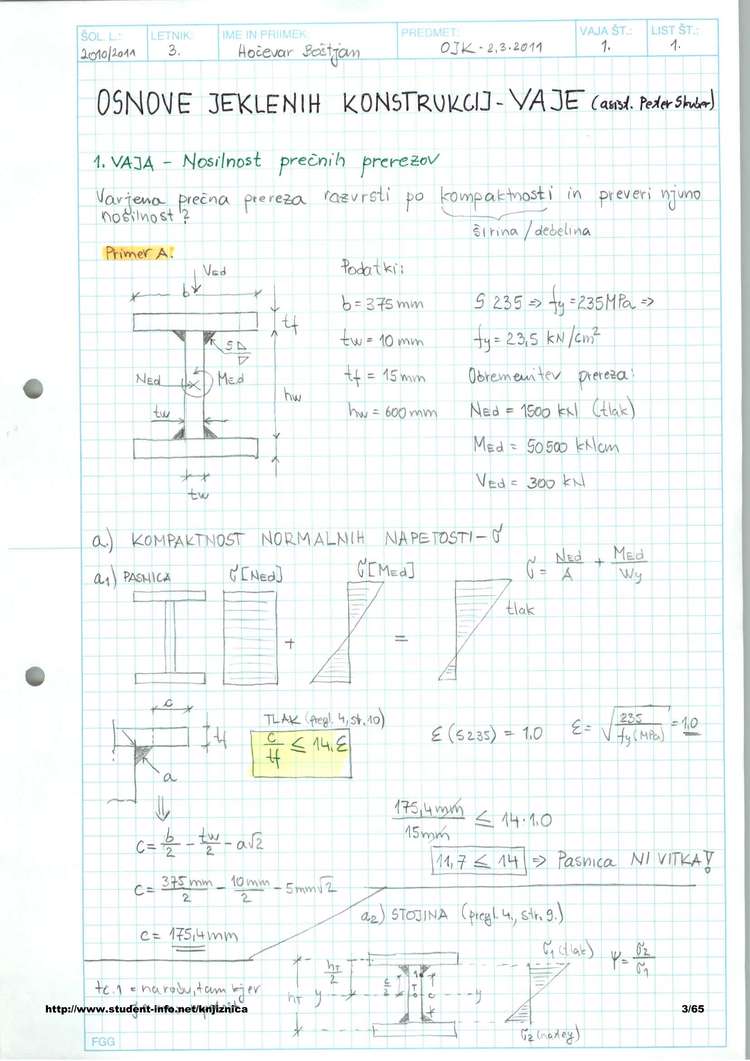 ŠOL. L.: LETNIK: IME IN PRIIMEK: PREDMET: VAJA ŠT.: LIST ŠT.:
2010/2011 3. Hočevar Boštjan OJK - 2,3.2011 1. 1.
OSNOVE JEKLENIH KONSTRUKCIJ - VAJE (asist. Peter Skuber)
1. VAJA - Nosilnost prečnih prerezov
Varjena prečna prereza razvrsti po kompaktnosti in preveri njuno
nosilnost?
širina / debelina
Primer A:
VEd
b
tf
5
NEd
MEd
hw
tw
tw
Podatki:
b = 375 mm
tw = 10 mm
tf = 15 mm
hw = 600 mm
S 235 => fy = 235 MPa =>
fy = 23,5 kN/cm²
Obremenitev prereza:
NEd = 1500 kN (tlak)
MEd = 50500 kNcm
VEd = 300 kN
a.) KOMPAKTNOST NORMALNIH NAPETOSTI - σ
a1) PASNICA σ [NEd] σ [MEd] σ = NEd/A + MEd/Wy
+ = tlak
c
tf
a
TLAK (pregl. 4, str. 10)
c/tf ≤ 14.ε
ε (S235) = 1.0 ε = √(235/fy (MPa)) = 1,0
c = b/2 - tw/2 - a√2
c = 375 mm/2 - 10 mm/2 - 5mm√2
c = 175,4 mm
175,4 mm/15 mm ≤ 14 · 1.0
11,7 ≤ 14 => Pasnica NI VITKA!
a2) STOJINA (pregl. 4, str. 9.)
hT/2
hT
y
c/2
T
c
y
σ1 (tlak)
ψ = σ2/σ1
σ2 (nateg)
tc. 1 = na robu, tam kjer
http://www.student-info.net/knjiznica 3/65
FGG